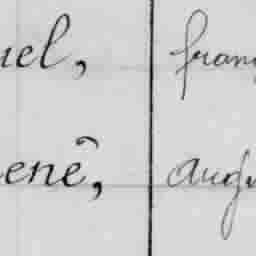 uel, franç
enê, Augu